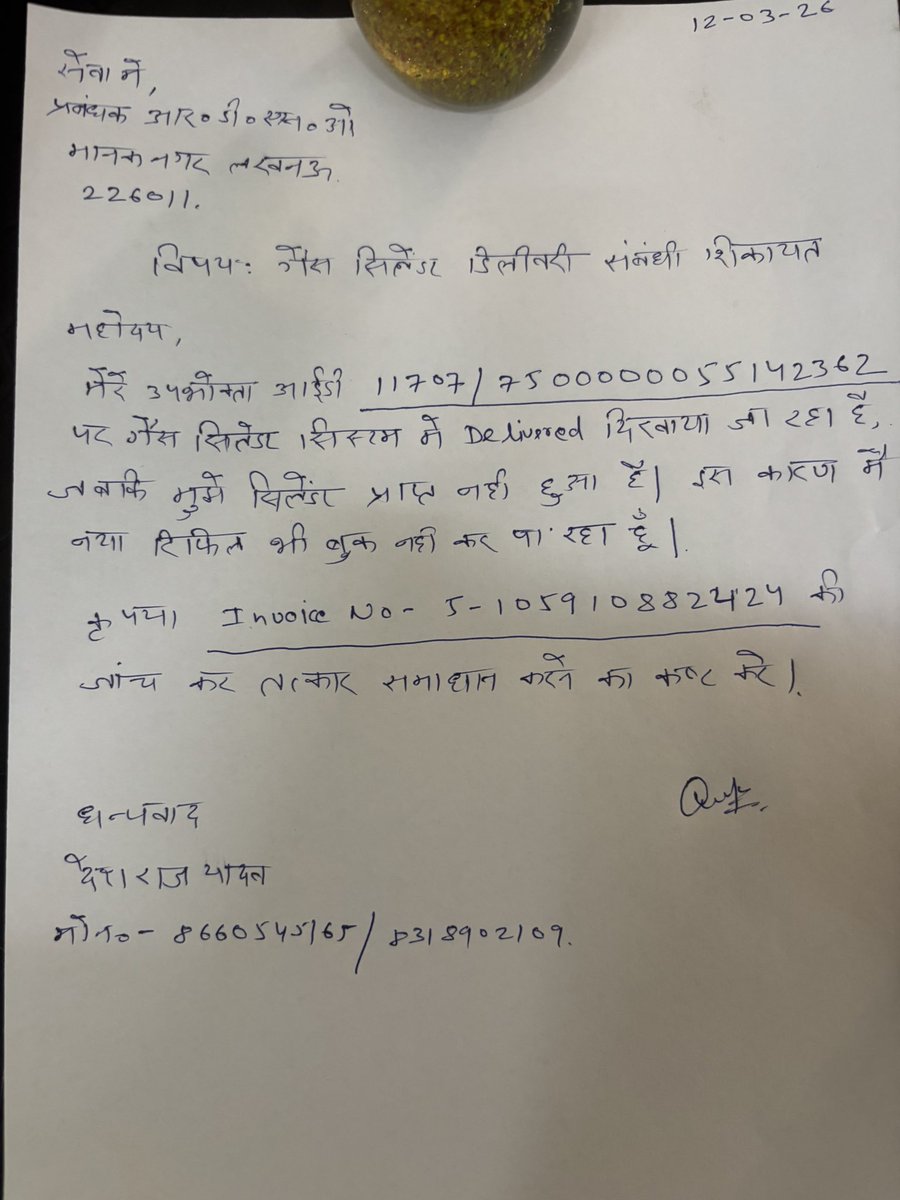 12-03-26
सेवा में,
प्रबंधक आर० डी० एस० ओ
मानक नगर लखनऊ.
226011.
विषय: गैस सिलेंडर डिलीवरी संबंधी शिकायत
महोदय,
मेरे उपभोक्ता आईडी 11707/7500000055142362
पर गैस सिलेंडर सिस्टम में Delivered दिखाया जा रहा है,
जबकि मुझे सिलेंडर प्राप्त नहीं हुआ है। इस कारण मैं
नया रिफिल भी बुक नहीं कर पा रहा हूँ।
कृपया Invoice No- 5-1059108822424 की
जांच कर तत्कार समाधान करने का कष्ट करे।
धन्यवाद
देशराज यादव
मो न०- 8660545165/8318902109.